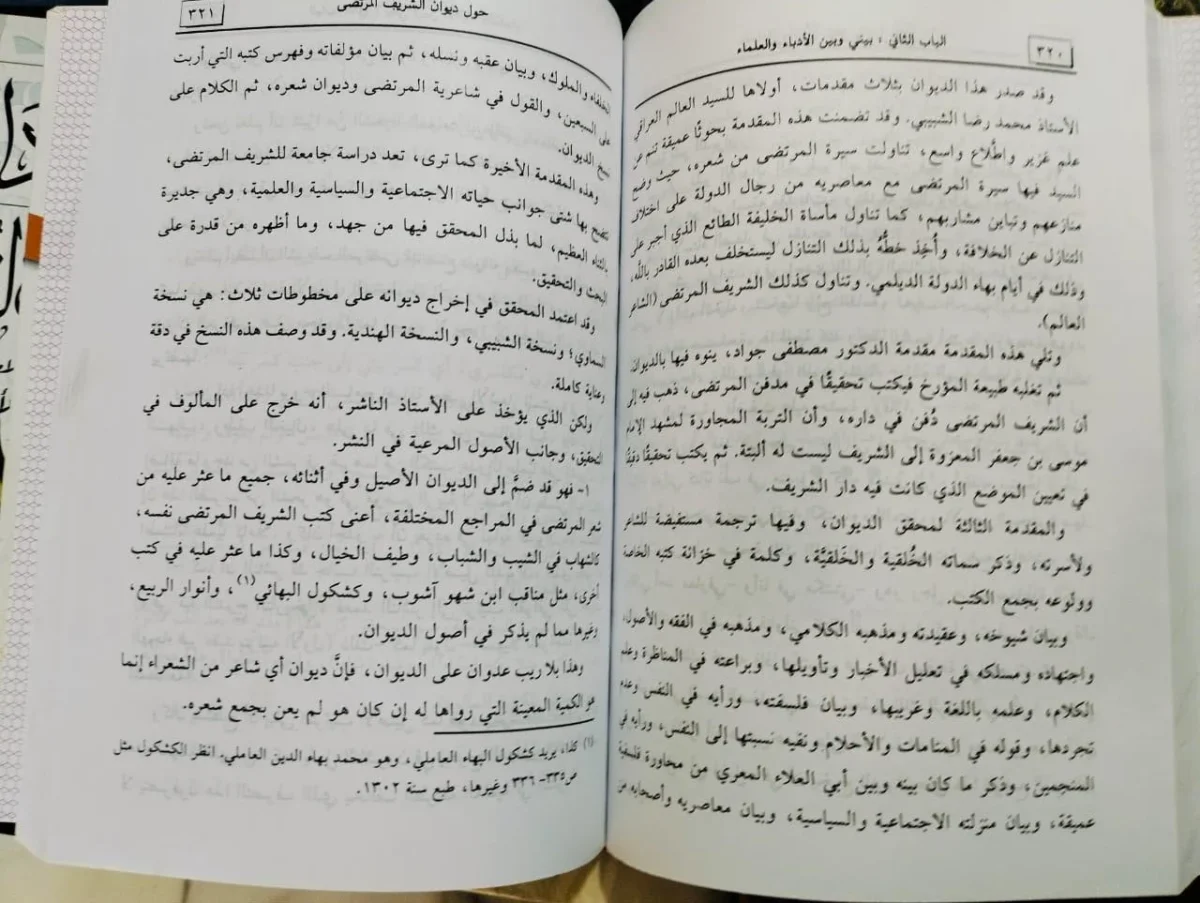 ٣٢٠
الباب الثاني : بيني وبين الأدباء والعلماء
وقد صدر هذا الديوان بثلاث مقدمات، أولاها للسيد العالم العراقي
الأستاذ محمد رضا الشبيبي. وقد تضمنت هذه المقدمة بحوثًا عميقة تنم عن
علم غزير واطِّلاع واسع، تناولت سيرة المرتضى من شعره، حيث وضح
السيد فيها سيرة المرتضى مع معاصريه من رجال الدولة على اختلاف
منازعهم وتباين مشاربهم، كما تناول مأساة الخليفة الطائع الذي أجبر على
التنازل عن الخلافة، وأُخِذ خطُّهُ بذلك التنازل ليستخلف بعده القادر بالله،
وذلك في أيام بهاء الدولة الديلمي. وتناول كذلك الشريف المرتضى (الشاعر
العالم).
وتلي هذه المقدمة مقدمة الدكتور مصطفى جواد، ينوه فيها بالديوان.
ثم تغلبه طبيعة المؤرخ فيكتب تحقيقًا في مدفن المرتضى، ذهب فيه إلى
أن الشريف المرتضى دُفن في داره، وأن التربة المجاورة لمشهد الإمام
موسى بن جعفر المعزوة إلى الشريف ليست له ألبتة. ثم يكتب تحقيقًا دقيقًا
في تعيين الموضع الذي كانت فيه دار الشريف.
والمقدمة الثالثة لمحقق الديوان، وفيها ترجمة مستفيضة للشاعر
ولأسرته، وذكر سماته الخُلقية والخَلقيَّة، وكلمة في خزانة كتبه الخاصة
وولوعه بجمع الكتب.
وبيان شيوخه، وعقيدته ومذهبه الكلامي، ومذهبه في الفقه والأصول،
واجتهاده ومسلكه في تعليل الأخبار وتأويلها، وبراعته في المناظرة وعلم
الكلام، وعلمه باللغة وغريبها، وبيان فلسفته، ورأيه في النفس وعدم
تجردها، وقوله في المنامات والأحلام ونقيه نسبتها إلى النفس، ورأيه في
المنجمين، وذكر ما كان بينه وبين أبي العلاء المعري من محاورة فلسفية
عميقة، وبيان منزلته الاجتماعية والسياسية، وبيان معاصريه وأصحابه من
حول ديوان الشريف المرتضى
٣٢١
الخلفاء والملوك، وبيان عقبه ونسله، ثم بيان مؤلفاته وفهرس كتبه التي أربت
على السبعين، والقول في شاعرية المرتضى وديوان شعره، ثم الكلام على
نسخ الديوان.
وهذه المقدمة الأخيرة كما ترى، تعد دراسة جامعة للشريف المرتضى،
تتضح بها شتى جوانب حياته الاجتماعية والسياسية والعلمية، وهي جديرة
بالثناء العظيم، لما بذل المحقق فيها من جهد، وما أظهره من قدرة على
البحث والتحقيق.
وقد اعتمد المحقق في إخراج ديوانه على مخطوطات ثلاث: هي نسخة
السماوي؛ ونسخة الشبيبي، والنسخة الهندية. وقد وصف هذه النسخ في دقة
وعناية كاملة.
ولكن الذي يؤخذ على الأستاذ الناشر، أنه خرج على المألوف في
التحقيق، وجانب الأصول المرعية في النشر.
١- فهو قد ضمَّ إلى الديوان الأصيل وفي أثنائه، جميع ما عثر عليه من
شعر المرتضى في المراجع المختلفة، أعنى كتب الشريف المرتضى نفسه،
كالشهاب في الشيب والشباب، وطيف الخيال، وكذا ما عثر عليه في كتب
أخرى، مثل مناقب ابن شهو آشوب، وكشكول البهائي(١)، وأنوار الربيع،
وغيرها مما لم يذكر في أصول الديوان.
وهذا بلا ريب عدوان على الديوان، فإنَّ ديوان أي شاعر من الشعراء إنما
هو الكمية المعينة التي رواها له إن كان هو لم يعن بجمع شعره.
(١) كذا، يريد كشكول البهاء العاملي، وهو محمد بهاء الدين العاملي. انظر الكشكول مثل
ص٣٣٥- ٣٣٦ وغيرها، طبع سنة ١٣٠٢.